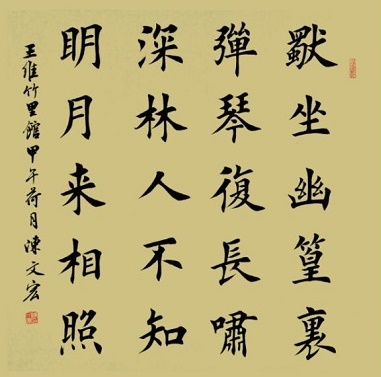 獨坐幽篁裏
彈琴復長嘯
深林人不知
明月来相照
王維竹里館甲午荷月陳文宏